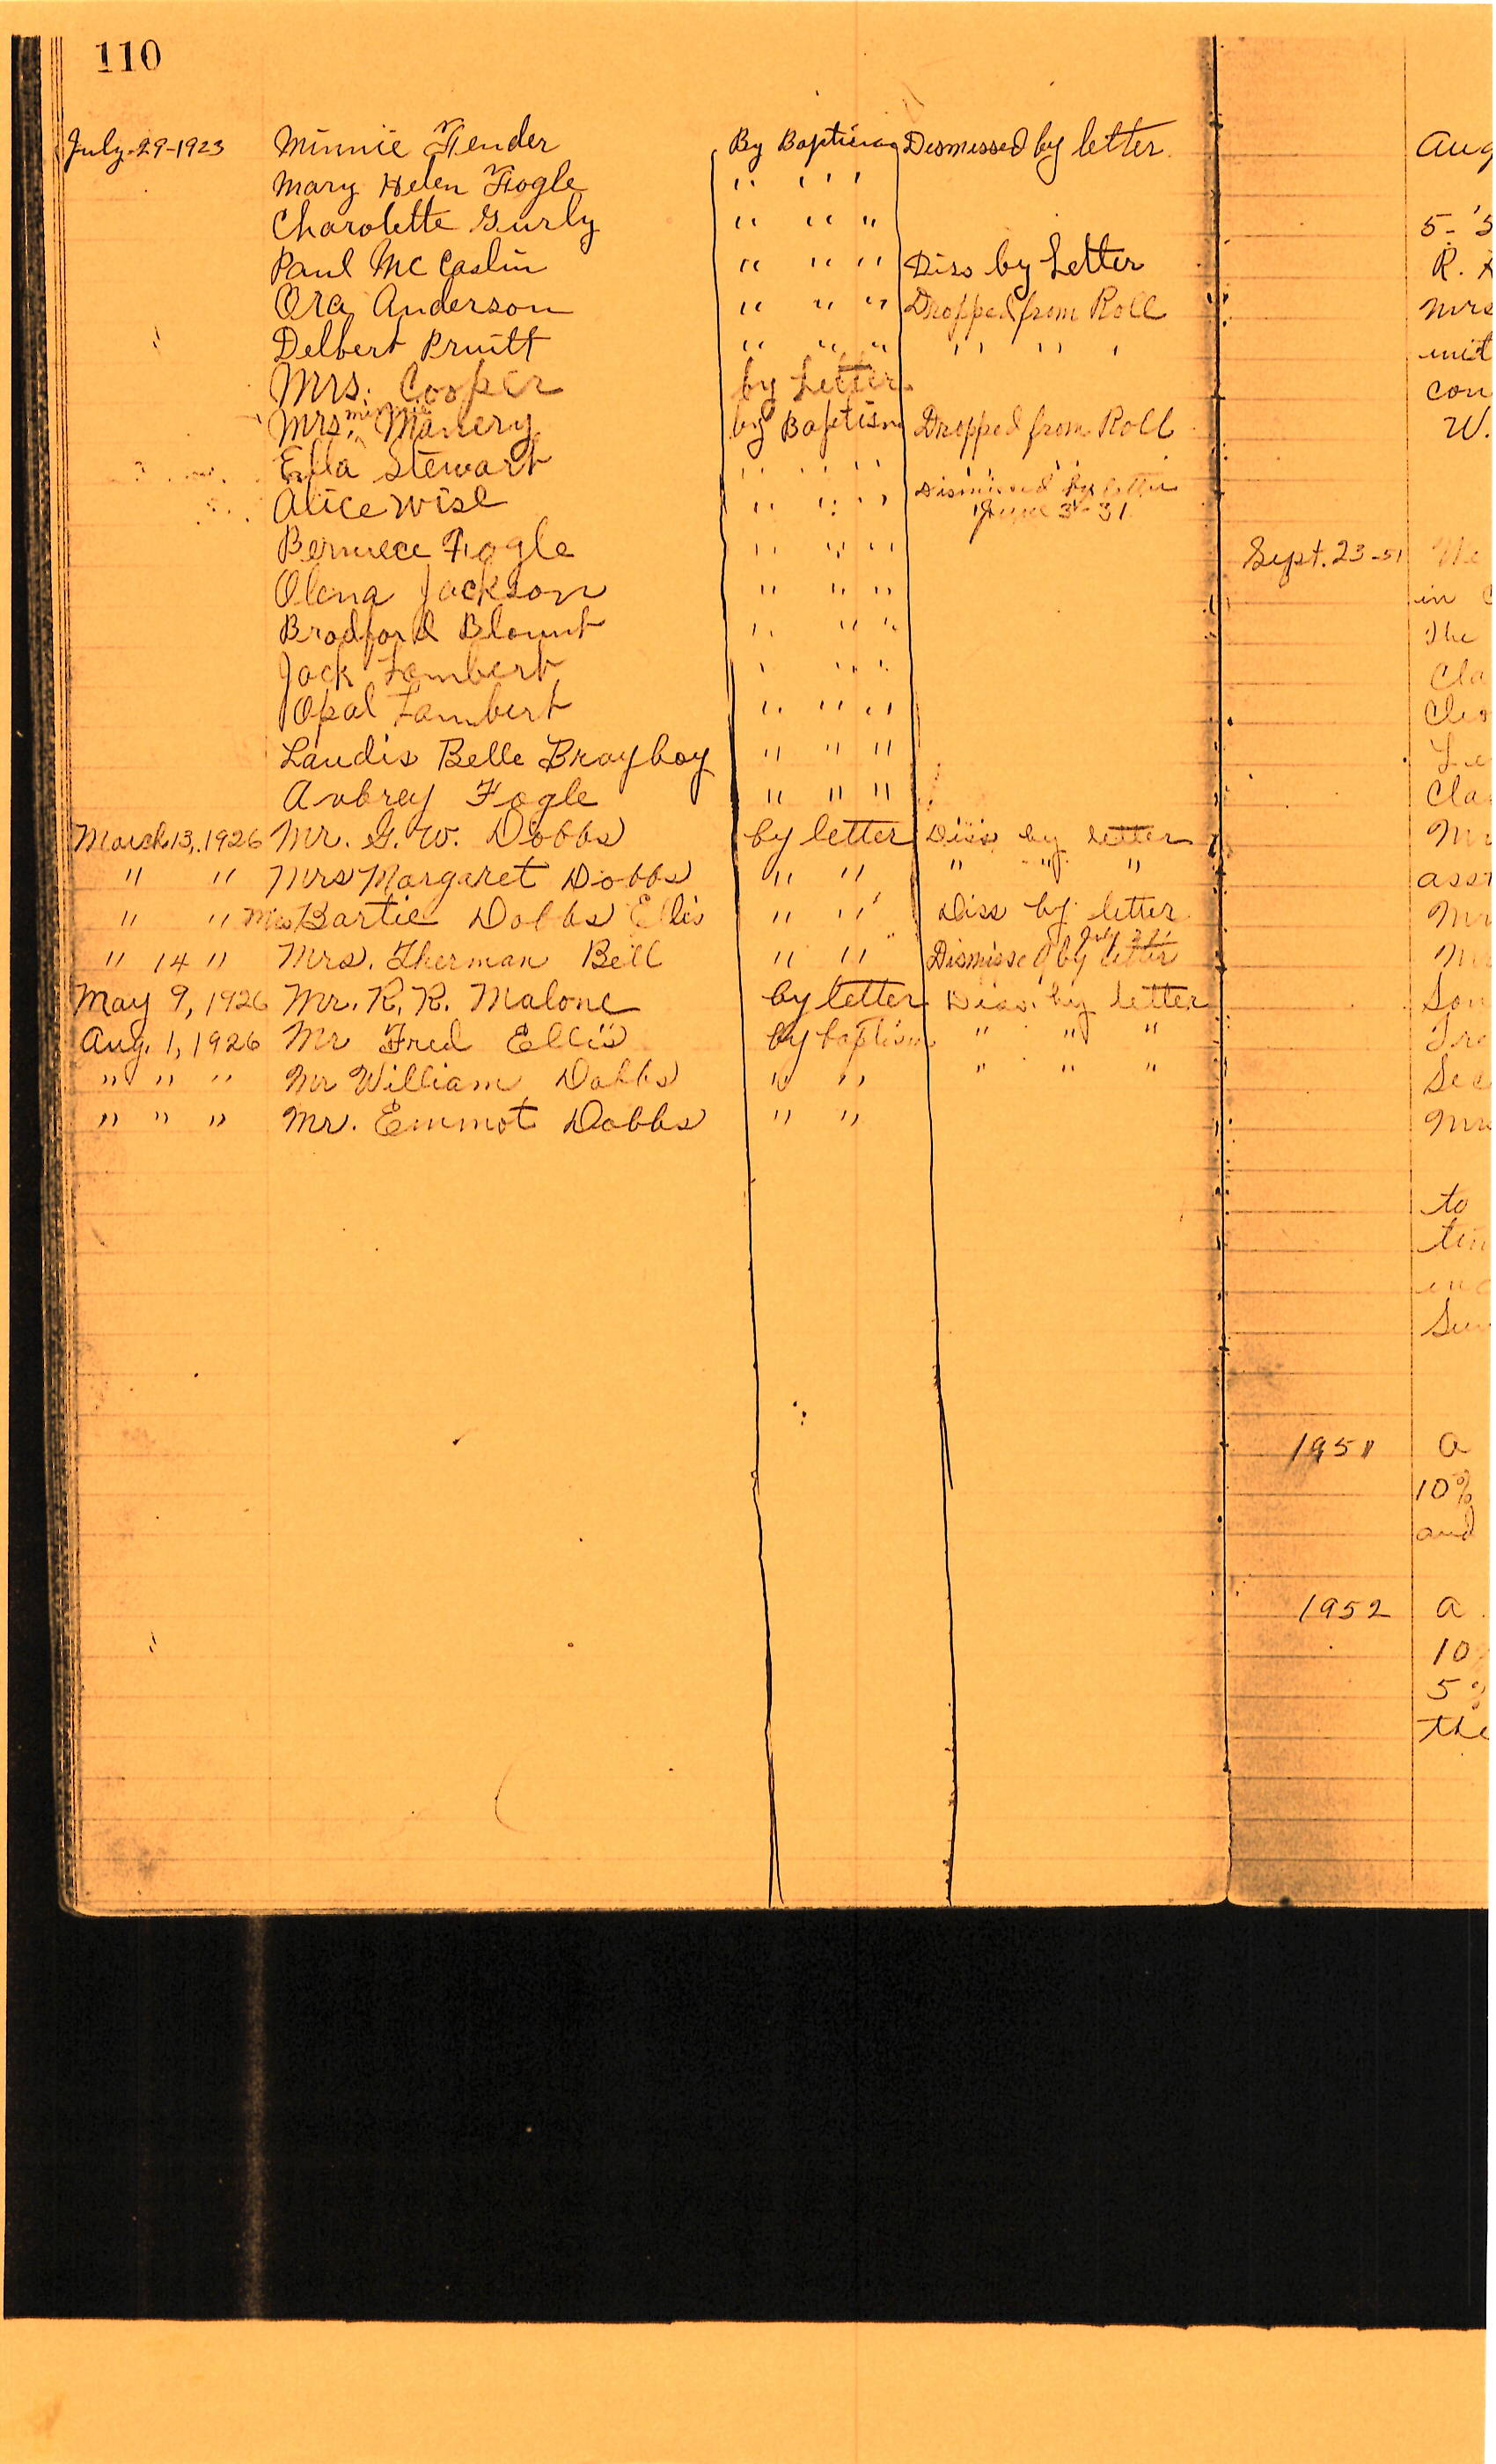 110
July-29-1923 Minnie Fender By Baptism Dismissed by letter
Mary Helen Fogle " " "
Charolette Gurly " " "
Paul McCaslin " " " Diss by Letter
Ora Anderson " " " Dropped from Roll
Delbert Pruitt " " " " " "
Mrs. Cooper by Letter
Mrs. Minnie Manery by Baptism Dropped from Roll
Ella Stewart " " "
Alice Wise " " " Dismissed by letter
June 3-31
Berniece Fogle " " "
Olena Jackson " " "
Bradford Blount " " "
Jack Lambert " " "
Opal Lambert " " "
Laudis Belle Brayboy " " "
Aubrey Fogle " " "
March 13, 1926 Mr. G. W. Dobbs by letter Diss by letter
" " Mrs Margaret Dobbs " " " " "
" " Mrs Bartie Dobbs Ellis " " Diss by letter
" 14 " Mrs. Therman Bell " " Dismissed by letter
May 9, 1926 Mr. R. R. Malone by letter Diss. by letter
Aug. 1, 1926 Mr Fred Ellis by baptism " " "
" " " Mr William Dobbs " " " " "
" " " Mr. Emmot Dobbs " "
Aug
5-'5
R.
Mrs
unit
con
W.
Sept. 23-51
in
The
Cla
Cla
Mr
ass
Mr
Mr
Son
Tre
Sec
Mr
to
Sun
1951 a
10%
and
1952 a
10
5%
the